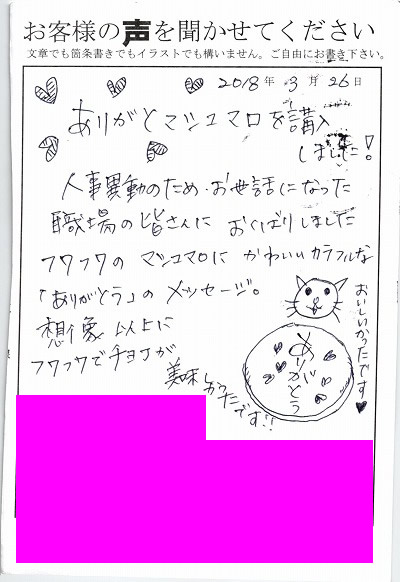 お客様の声を聞かせてください
文章でも箇条書きでもイラストでも構いません。ご自由にお書き下さい。
2018年 3月 26日
ありがとマシュマロを購入
しました!
人事異動のため、お世話になった
職場の皆さんに おくばりしました
フワフワの マシュマロに かわいいカラフルな
「ありがとう」の メッセージ。
想像以上に
フワフワでチョコが
美味しかったです!!
ありがとう
おいしいかったです♥